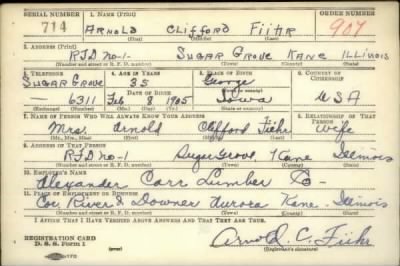 SERIAL NUMBER 1. NAME (Print) ORDER NUMBER
714 ARNOLD CLIFFORD FIIHR 907
(First) (Middle) (Last)
2. ADDRESS (Print)
RFD No-1 SUGAR GROVE KANE ILLINOIS
(Number and street or R. F. D. number) (Town) (County) (State)
3. TELEPHONE 4. AGE IN YEARS 5. PLACE OF BIRTH 6. COUNTRY OF CITIZENSHIP
SUGAR GROVE 35 George
DATE OF BIRTH
6311 Feb 8 1905 Iowa USA
(Exchange) (Number) (Mo.) (Day) (Yr.) (State or country)
7. NAME OF PERSON WHO WILL ALWAYS KNOW YOUR ADDRESS 8. RELATIONSHIP OF THAT PERSON
Mrs. Arnold Clifford Fiihr Wife
(Mr., Mrs., Miss) (First) (Middle) (Last)
9. ADDRESS OF THAT PERSON
RFD No-1 Sugar Grove, Kane Illinois
(Number and street or R. F. D. number) (Town) (County) (State)
10. EMPLOYER'S NAME
Alexander Carr Lumber Co-
11. PLACE OF EMPLOYMENT OR BUSINESS
Cor River & Downer Aurora Kane - Illinois
(Number and street or R. F. D. number) (Town) (County) (State)
I AFFIRM THAT I HAVE VERIFIED ABOVE ANSWERS AND THAT THEY ARE TRUE.
REGISTRATION CARD
D. S. S. Form 1
Arnold C. Fiihr
(Registrant's signature)